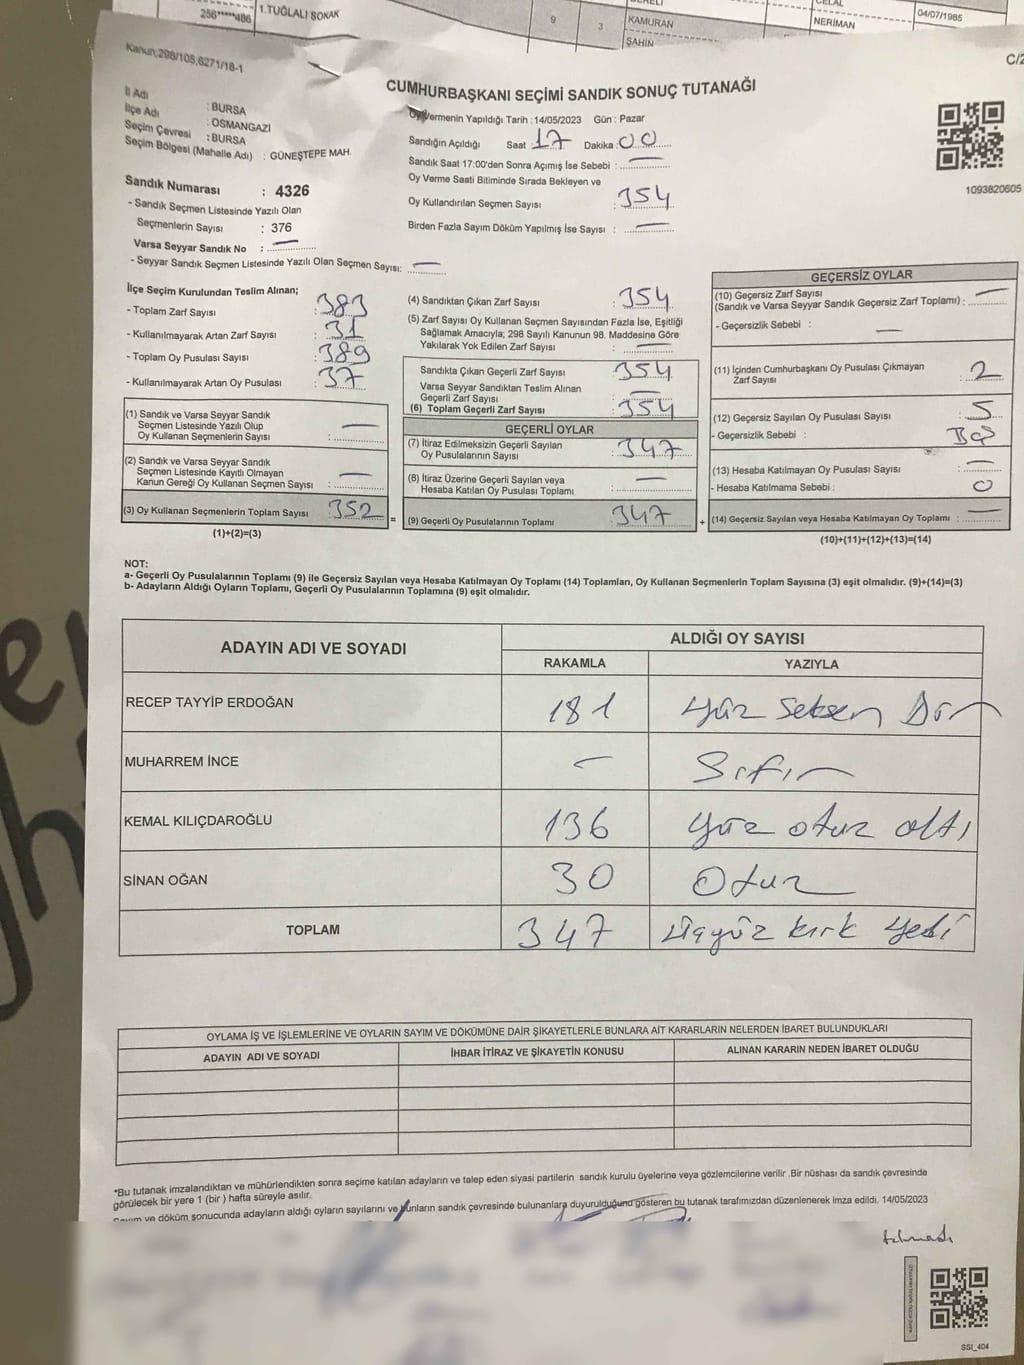 256*****486
1.TUĞLALI SOKAK
9
3
KAMURAN
ŞAHİN
CELAL
NERİMAN
04/07/1985
Kanun;298/105;6271/18-1
C/2
CUMHURBAŞKANI SEÇİMİ SANDIK SONUÇ TUTANAĞI
İl Adı : BURSA
İlçe Adı : OSMANGAZİ
Seçim Çevresi : BURSA
Seçim Bölgesi (Mahalle Adı) : GÜNEŞTEPE MAH.
Sandık Numarası : 4326
- Sandık Seçmen Listesinde Yazılı Olan
Seçmenlerin Sayısı : 376
Varsa Seyyar Sandık No : —
- Seyyar Sandık Seçmen Listesinde Yazılı Olan Seçmen Sayısı: —
Oy Vermenin Yapıldığı Tarih : 14/05/2023 Gün : Pazar
Sandığın Açıldığı Saat : 17 Dakika : 00
Sandık Saat 17:00'den Sonra Açımış İse Sebebi : —
Oy Verme Saati Bitiminde Sırada Bekleyen ve
Oy Kullandırılan Seçmen Sayısı : 354
Birden Fazla Sayım Döküm Yapılmış İse Sayısı : —
1093820605
İlçe Seçim Kurulundan Teslim Alınan;
- Toplam Zarf Sayısı : 383
- Kullanılmayarak Artan Zarf Sayısı : 31
- Toplam Oy Pusulası Sayısı : 389
- Kullanılmayarak Artan Oy Pusulası : 37
(1) Sandık ve Varsa Seyyar Sandık
Seçmen Listesinde Yazılı Olup
Oy Kullanan Seçmenlerin Sayısı : —
(2) Sandık ve Varsa Seyyar Sandık
Seçmen Listesinde Kayıtlı Olmayan
Kanun Gereği Oy Kullanan Seçmen Sayısı : —
(3) Oy Kullanan Seçmenlerin Toplam Sayısı : 352
(1)+(2)=(3)
=
(4) Sandıktan Çıkan Zarf Sayısı : 354
(5) Zarf Sayısı Oy Kullanan Seçmen Sayısından Fazla İse, Eşitliği
Sağlamak Amacıyla; 298 Sayılı Kanunun 98. Maddesine Göre
Yakılarak Yok Edilen Zarf Sayısı : —
Sandıkta Çıkan Geçerli Zarf Sayısı : 354
Varsa Seyyar Sandıktan Teslim Alınan
Geçerli Zarf Sayısı : —
(6) Toplam Geçerli Zarf Sayısı : 354
GEÇERLİ OYLAR
(7) İtiraz Edilmeksizin Geçerli Sayılan
Oy Pusulalarının Sayısı : 347
(8) İtiraz Üzerine Geçerli Sayılan veya
Hesaba Katılan Oy Pusulası Toplamı : —
(9) Geçerli Oy Pusulalarının Toplamı 347
+
GEÇERSİZ OYLAR
(10) Geçersiz Zarf Sayısı
(Sandık ve Varsa Seyyar Sandık Geçersiz Zarf Toplamı) : —
- Geçersizlik Sebebi : —
(11) İçinden Cumhurbaşkanı Oy Pusulası Çıkmayan
Zarf Sayısı : 2
(12) Geçersiz Sayılan Oy Pusulası Sayısı : 5
- Geçersizlik Sebebi : Boş
(13) Hesaba Katılmayan Oy Pusulası Sayısı : —
- Hesaba Katılmama Sebebi : 0
(14) Geçersiz Sayılan veya Hesaba Katılmayan Oy Toplamı : —
(10)+(11)+(12)+(13)=(14)
NOT:
a- Geçerli Oy Pusulalarının Toplamı (9) ile Geçersiz Sayılan veya Hesaba Katılmayan Oy Toplamı (14) Toplamları, Oy Kullanan Seçmenlerin Toplam Sayısına (3) eşit olmalıdır. (9)+(14)=(3)
b- Adayların Aldığı Oyların Toplamı, Geçerli Oy Pusulalarının Toplamına (9) eşit olmalıdır.
ADAYIN ADI VE SOYADI
ALDIĞI OY SAYISI
RAKAMLA YAZIYLA
RECEP TAYYİP ERDOĞAN 181 Yüz Seksen
MUHARREM İNCE – Sıfır
KEMAL KILIÇDAROĞLU 136 Yüz otuz altı
SİNAN OĞAN 30 Otuz
TOPLAM 347 Üçyüz kırk yedi
OYLAMA İŞ VE İŞLEMLERİNE VE OYLARIN SAYIM VE DÖKÜMÜNE DAİR ŞİKAYETLERLE BUNLARA AİT KARARLARIN NELERDEN İBARET BULUNDUKLARI
ADAYIN ADI VE SOYADI İHBAR İTİRAZ VE ŞİKAYETİN KONUSU ALINAN KARARIN NEDEN İBARET OLDUĞU
*Bu tutanak imzalandıktan ve mühürlendikten sonra seçime katılan adayların ve talep eden siyasi partilerin sandık kurulu üyelerine veya gözlemcilerine verilir .Bir nüshası da sandık çevresinde
görülecek bir yere 1 (bir ) hafta süreyle asılır.
Sayım ve döküm sonucunda adayların aldığı oyların sayılarını ve bunların sandık çevresinde bulunanlara duyurulduğunu gösteren bu tutanak tarafımızdan düzenlenerek imza edildi. 14/05/2023
SSİ_404